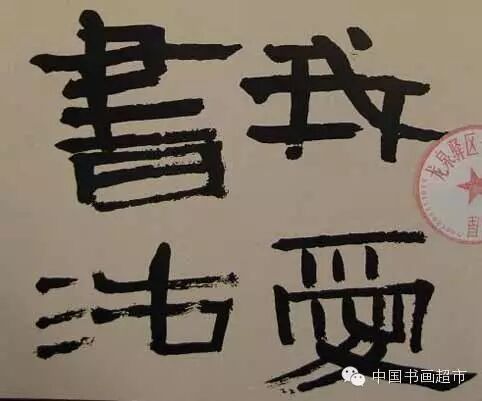 我愛
書法
龙泉驿区
中国书画超市